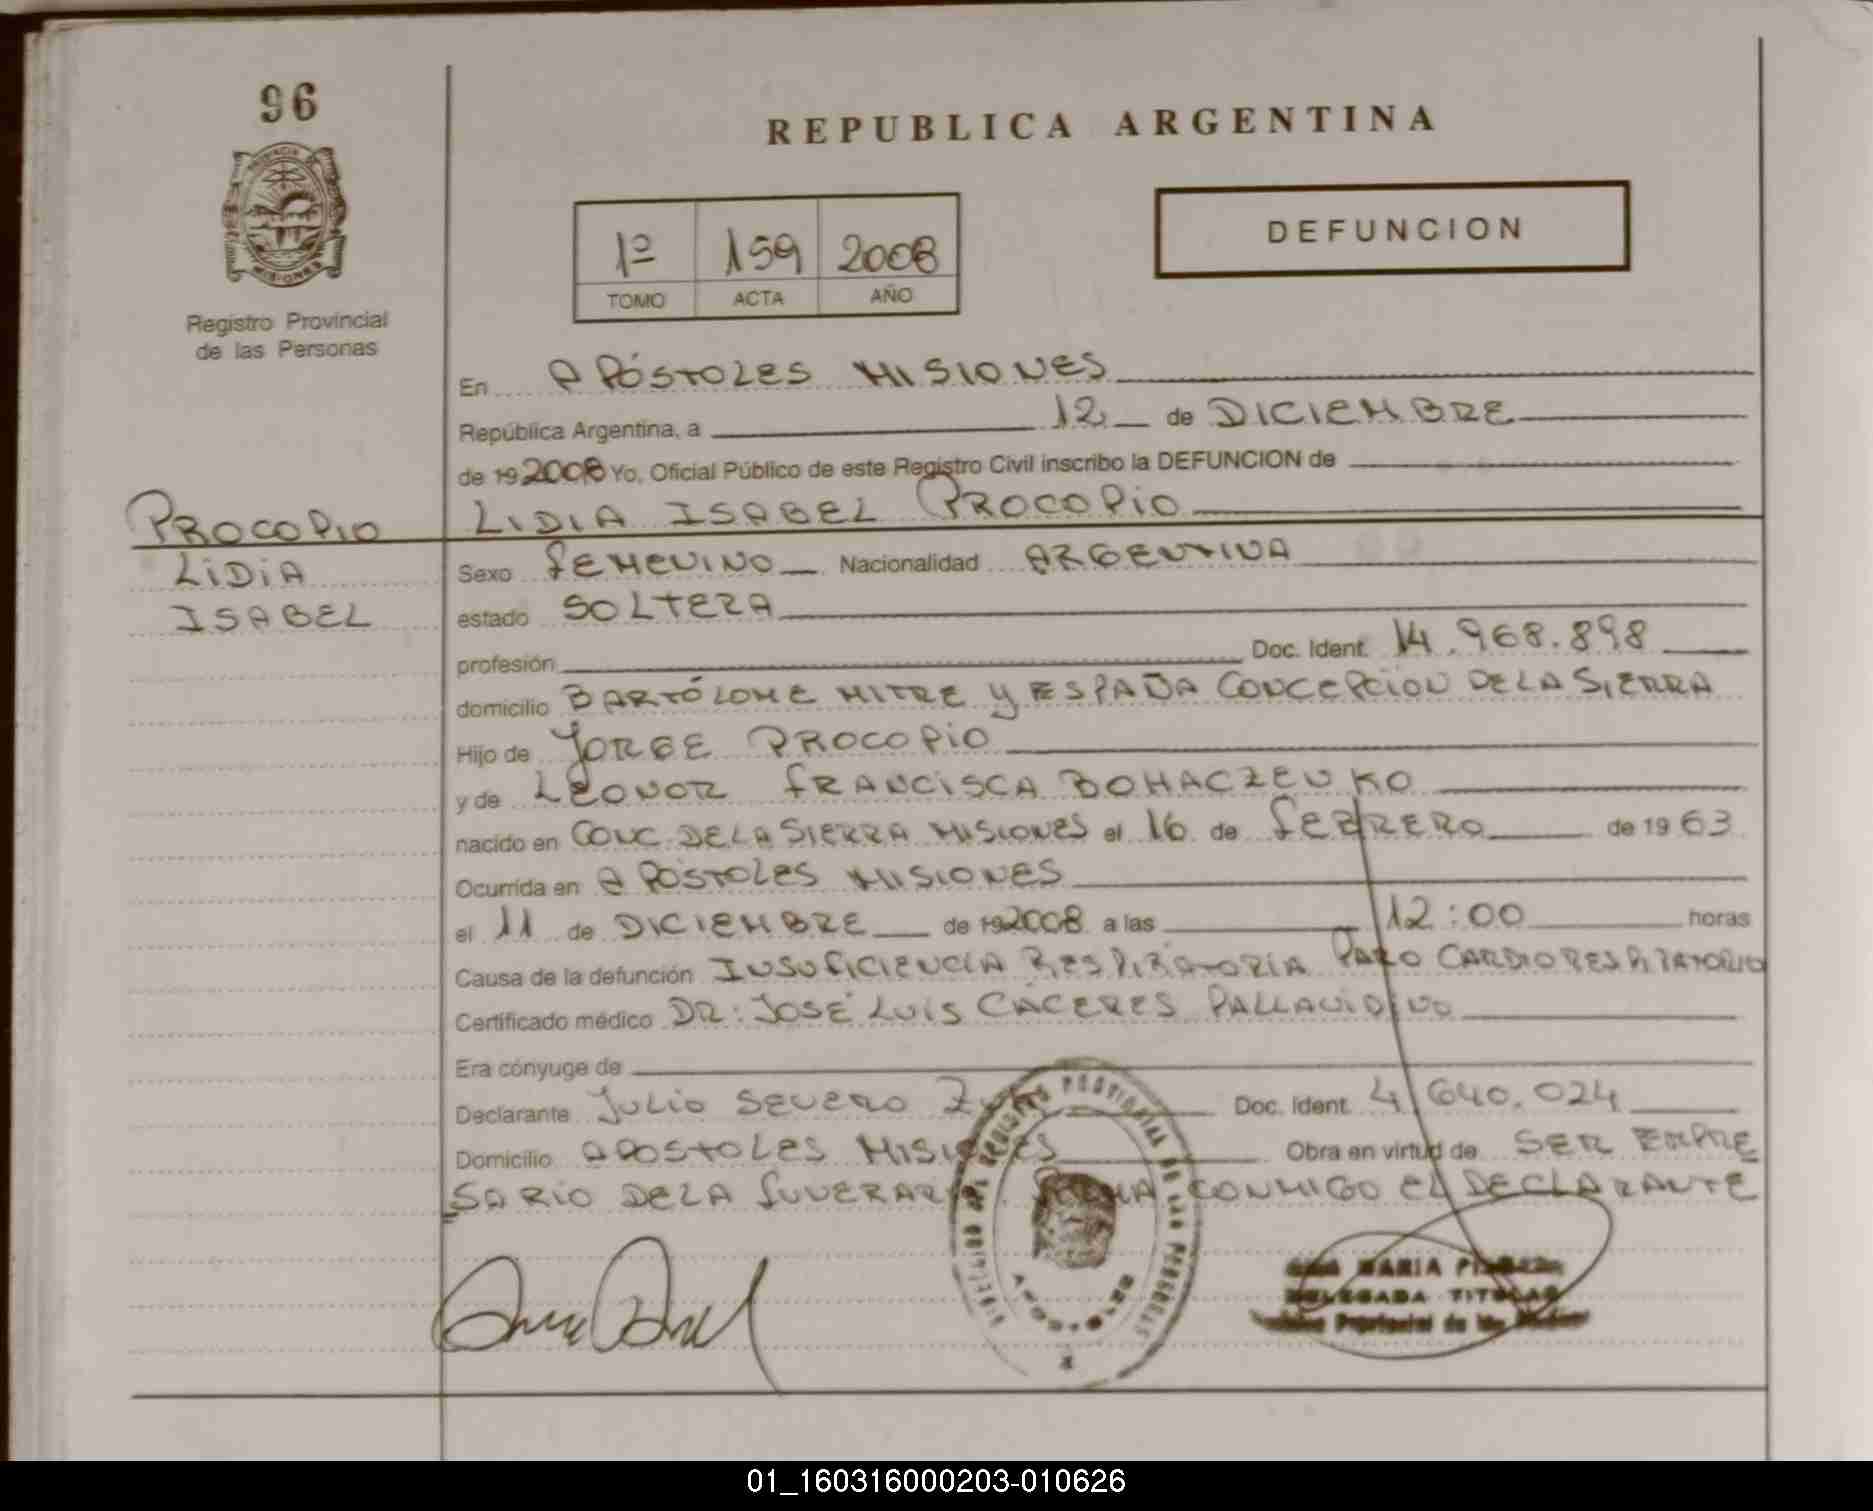 96
REPUBLICA ARGENTINA
PROVINCIA DE
MISIONES
Registro Provincial
de las Personas
1º 159 2008
TOMO ACTA AÑO
DEFUNCION
En APÓSTOLES MISIONES
República Argentina, a 12 de DICIEMBRE
de 19 2008 Yo, Oficial Público de este Registro Civil inscribo la DEFUNCION de
LIDIA ISABEL PROCOPIO
PROCOPIO
LIDIA
ISABEL
Sexo FEMENINO Nacionalidad ARGENTINA
estado SOLTERA
profesión Doc. Ident. 14.968.898
domicilio BARTÓLOME MITRE Y ESPAÑA CONCEPCION DE LA SIERRA
Hijo de JORGE PROCOPIO
y de LEONOR FRANCISCA BOHACZENKO
nacido en CONC. DE LA SIERRA MISIONES el 16 de FEBRERO de 19 63
Ocurrida en APOSTOLES MISIONES
el 11 de DICIEMBRE de 19 2008 a las 12:00 horas
Causa de la defunción INSUFICIENCIA RESPIRATORIA PARO CARDIORESPIRATORIO
Certificado médico DR: JOSÉ LUIS CÁCERES PALLAVIDINO
Era cónyuge de
Declarante JULIO SEVERO Doc. Ident. 4.640.024
Domicilio APOSTOLES MISIONES Obra en virtud de SER EMPRE
SARIO DE LA FUNERARIA. FIRMA CONMIGO EL DECLARANTE
MARIA
DELEGADA TITULAR
Provincial de las
APOSTOLES
01_160316000203-010626